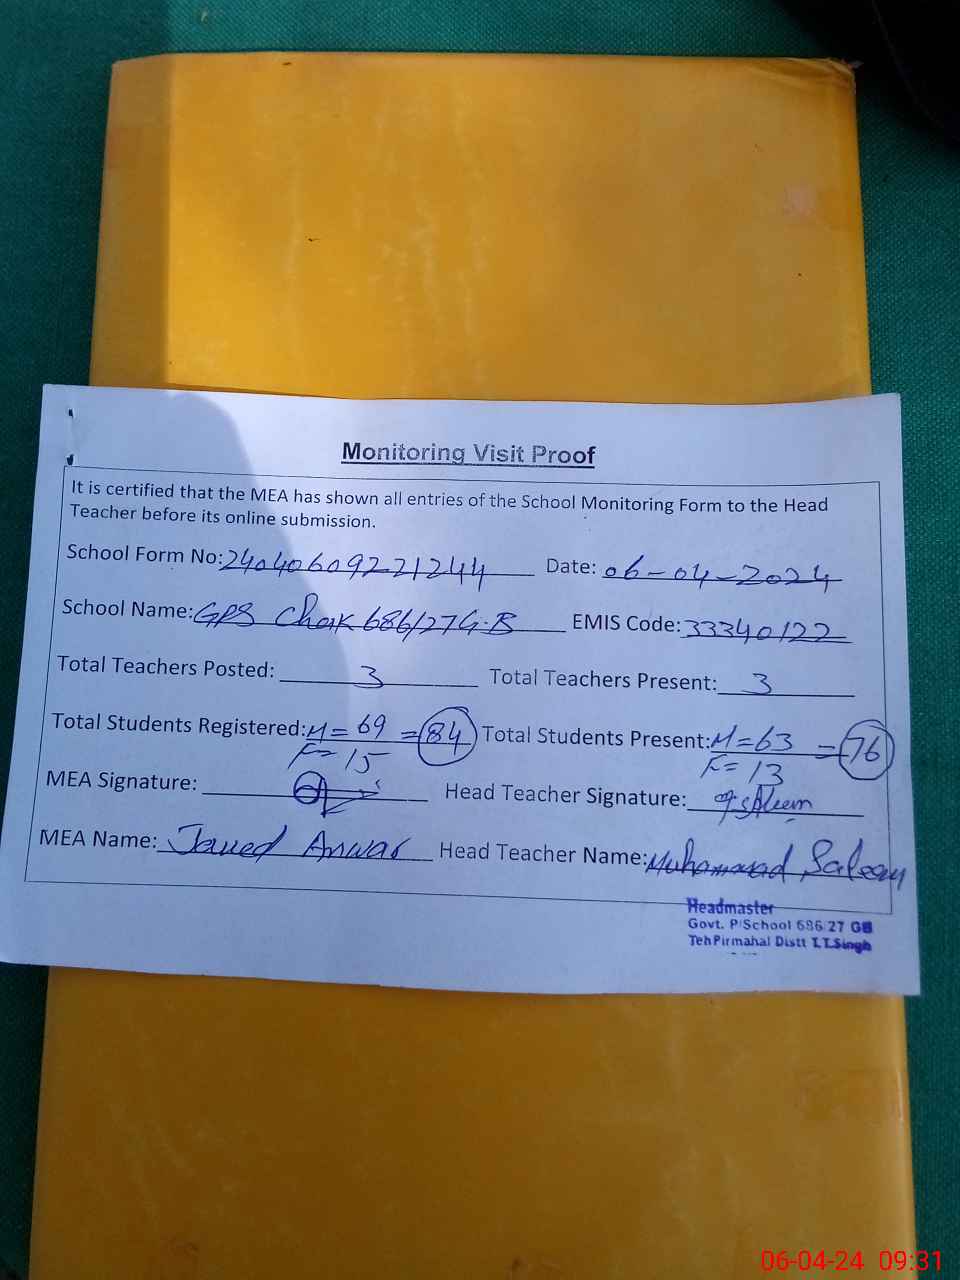 Monitoring Visit Proof
It is certified that the MEA has shown all entries of the School Monitoring Form to the Head
Teacher before its online submission.
School Form No: 24040609221244 Date: 06-04-2024
School Name: GPS Chak 686/27G.B EMIS Code: 33340122
Total Teachers Posted: 3 Total Teachers Present: 3
Total Students Registered: M=69 =84 Total Students Present: M=63 =76
F=15 F=13
MEA Signature: Head Teacher Signature:
MEA Name: Javed Anwar Head Teacher Name: Muhammad Saleem
Headmaster
Govt. P/School 686/27 GB
Teh Pirmahal Distt T.T.Singh
06-04-24 09:31